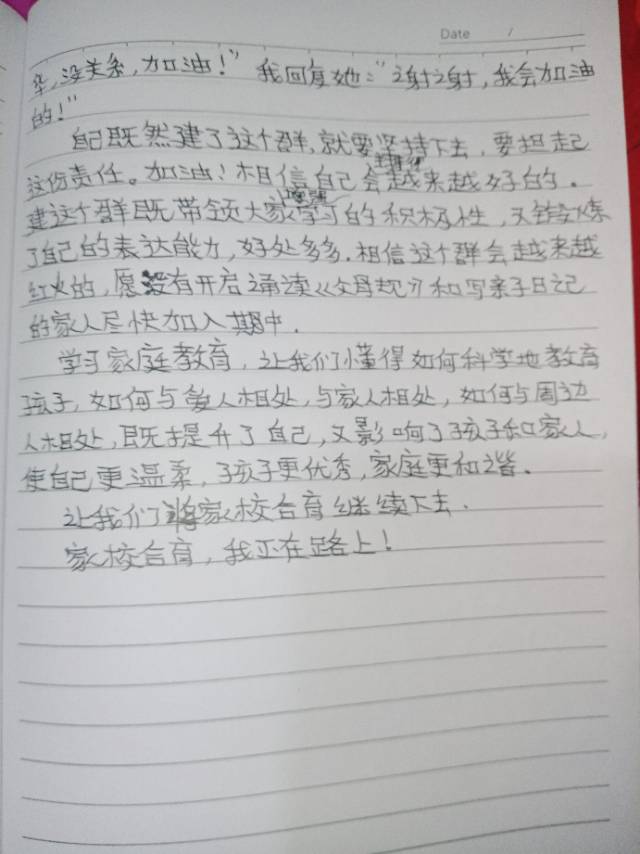 Date /
华,没关系,加油!”我回复她:“谢谢,我会加油
的!”
自己既然建了这个群,就要坚持下去,要担起
这份责任。加油!相信自己会越来越好的。
建这个群既带领大家学习的积极性,又锻炼
了自己的表达能力,好处多多.相信这个群会越来越
红火的,愿没有开启诵读《父母规》和写亲子日记
的家人尽快加入期中.
学习家庭教育,让我们懂得如何科学地教育
孩子,如何与爱人相处,与家人相处,如何与周边
人相处,既提升了自己,又影响了孩子和家人,
使自己更温柔,孩子更优秀,家庭更和谐.
让我们将家校合育继续下去.
家校合育,我正在路上!